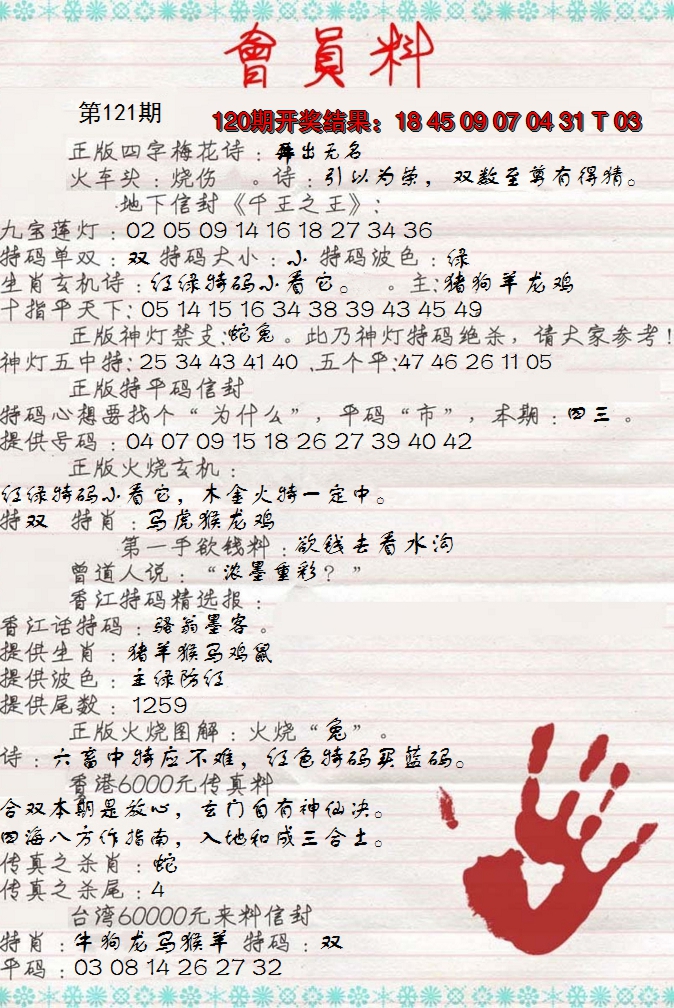 會員料
第121期
120期开奖结果：18 45 09 07 04 31 T 03
正版四字梅花诗：葬出无名
火车头：烧伤 。诗：引以为荣，双数至尊有得猜。
地下信封《千王之王》：
九宝莲灯：02 05 09 14 16 18 27 34 36
特码单双：双 特码大小：小 特码波色：绿
生肖玄机诗：红绿特码小看它。 。主：猪狗羊龙鸡
十指平天下：05 14 15 16 34 38 39 43 45 49
正版神灯禁支：蛇兔。此乃神灯特码绝杀，请大家参考！
神灯五中特：25 34 43 41 40 .五个平：47 46 26 11 05
正版特平码信封
特码心想要找个“为什么”，平码“市”，本期：四三 。
提供号码：04 07 09 15 18 26 27 39 40 42
正版火烧玄机：
红绿特码小看它，木金火特一定中。
特双 特肖：马虎猴龙鸡
第一手欲钱料：欲钱去看水沟
曾道人说：“浓墨重彩？”
香江特码精选报：
香江话特码：骚翁墨客。
提供生肖：猪羊猴马鸡鼠
提供波色：主绿防红
提供尾数：1259
正版火烧图解：火烧“兔”。
诗：六畜中特应不难，红色特码买蓝码。
香港6000元传真料
合双本期是放心，玄门自有神仙决。
四海八方作指南，入地和成三合土。
传真之杀肖：蛇
传真之杀尾：4
台湾60000元来料信封
特肖：牛狗龙马猴羊 特码：双
平码：03 08 14 26 27 32